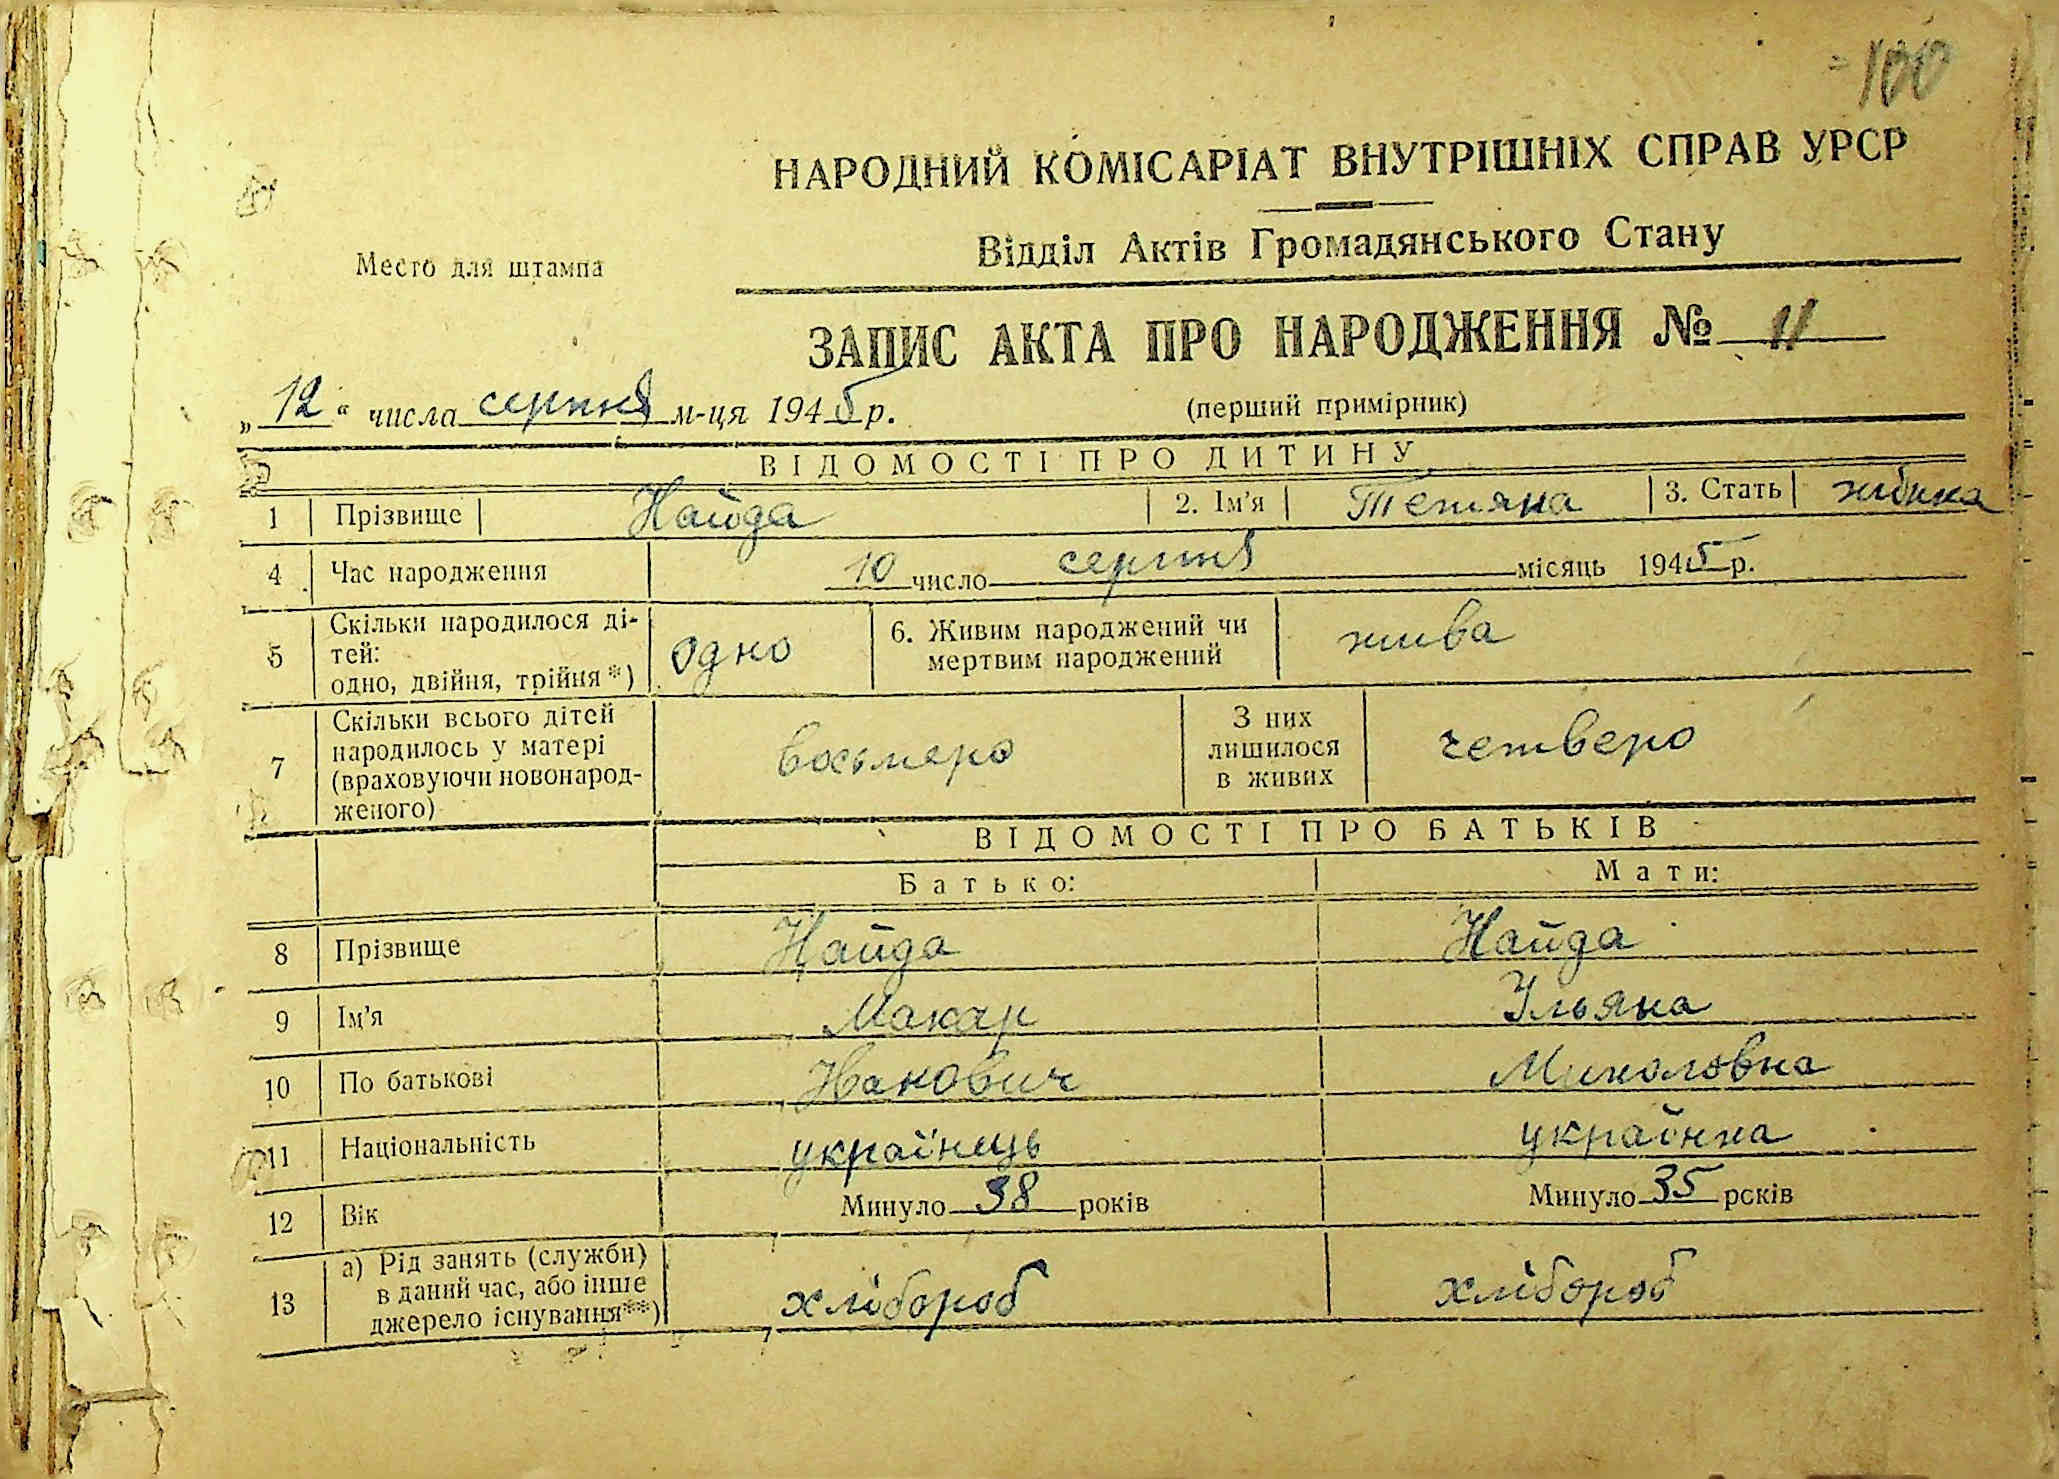 100
НАРОДНИЙ КОМІСАРІАТ ВНУТРІШНІХ СПРАВ УРСР
Відділ Актів Громадянського Стану
Место для штампа
ЗАПИС АКТА ПРО НАРОДЖЕННЯ № 11
„12“ числа серпня м-ця 1945 р. (перший примірник)
ВІДОМОСТІ ПРО ДИТИНУ
1 Прізвище Найда 2. Ім'я Тетяна 3. Стать жінка
4 Час народження 10 число серпня місяць 1945 р.
5 Скільки народилося ді-
тей:
одно, двійня, трійня*) одно 6. Живим народжений чи
мертвим народжений жива
7 Скільки всього дітей
народилось у матері
(враховуючи новонарод-
женого) восьмеро З них
лишилося
в живих четверо
ВІДОМОСТІ ПРО БАТЬКІВ
Батько: Мати:
8 Прізвище Найда Найда
9 Ім'я Макар Ульяна
10 По батькові Іванович Миколовна
11 Національність українець українка
12 Вік Минуло 38 років Минуло 35 років
13 а) Рід занять (служби)
в даний час, або інше
джерело існування**) хлібороб хлібороб